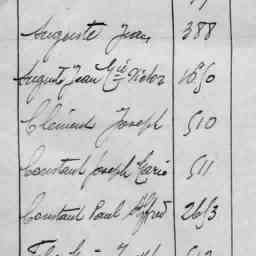 Auguste Jean 388
Auguste Jean Gré Victor 1050
Clément Joseph 510
Constant Joseph Marie 511
Constant Paul Alfred 2653